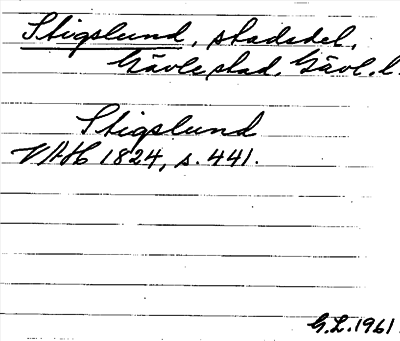 Stigslund, stadsdel,
Gävle stad, Gävl. l.
Stigslund
VAH 1824, s. 441.
G.L. 1961